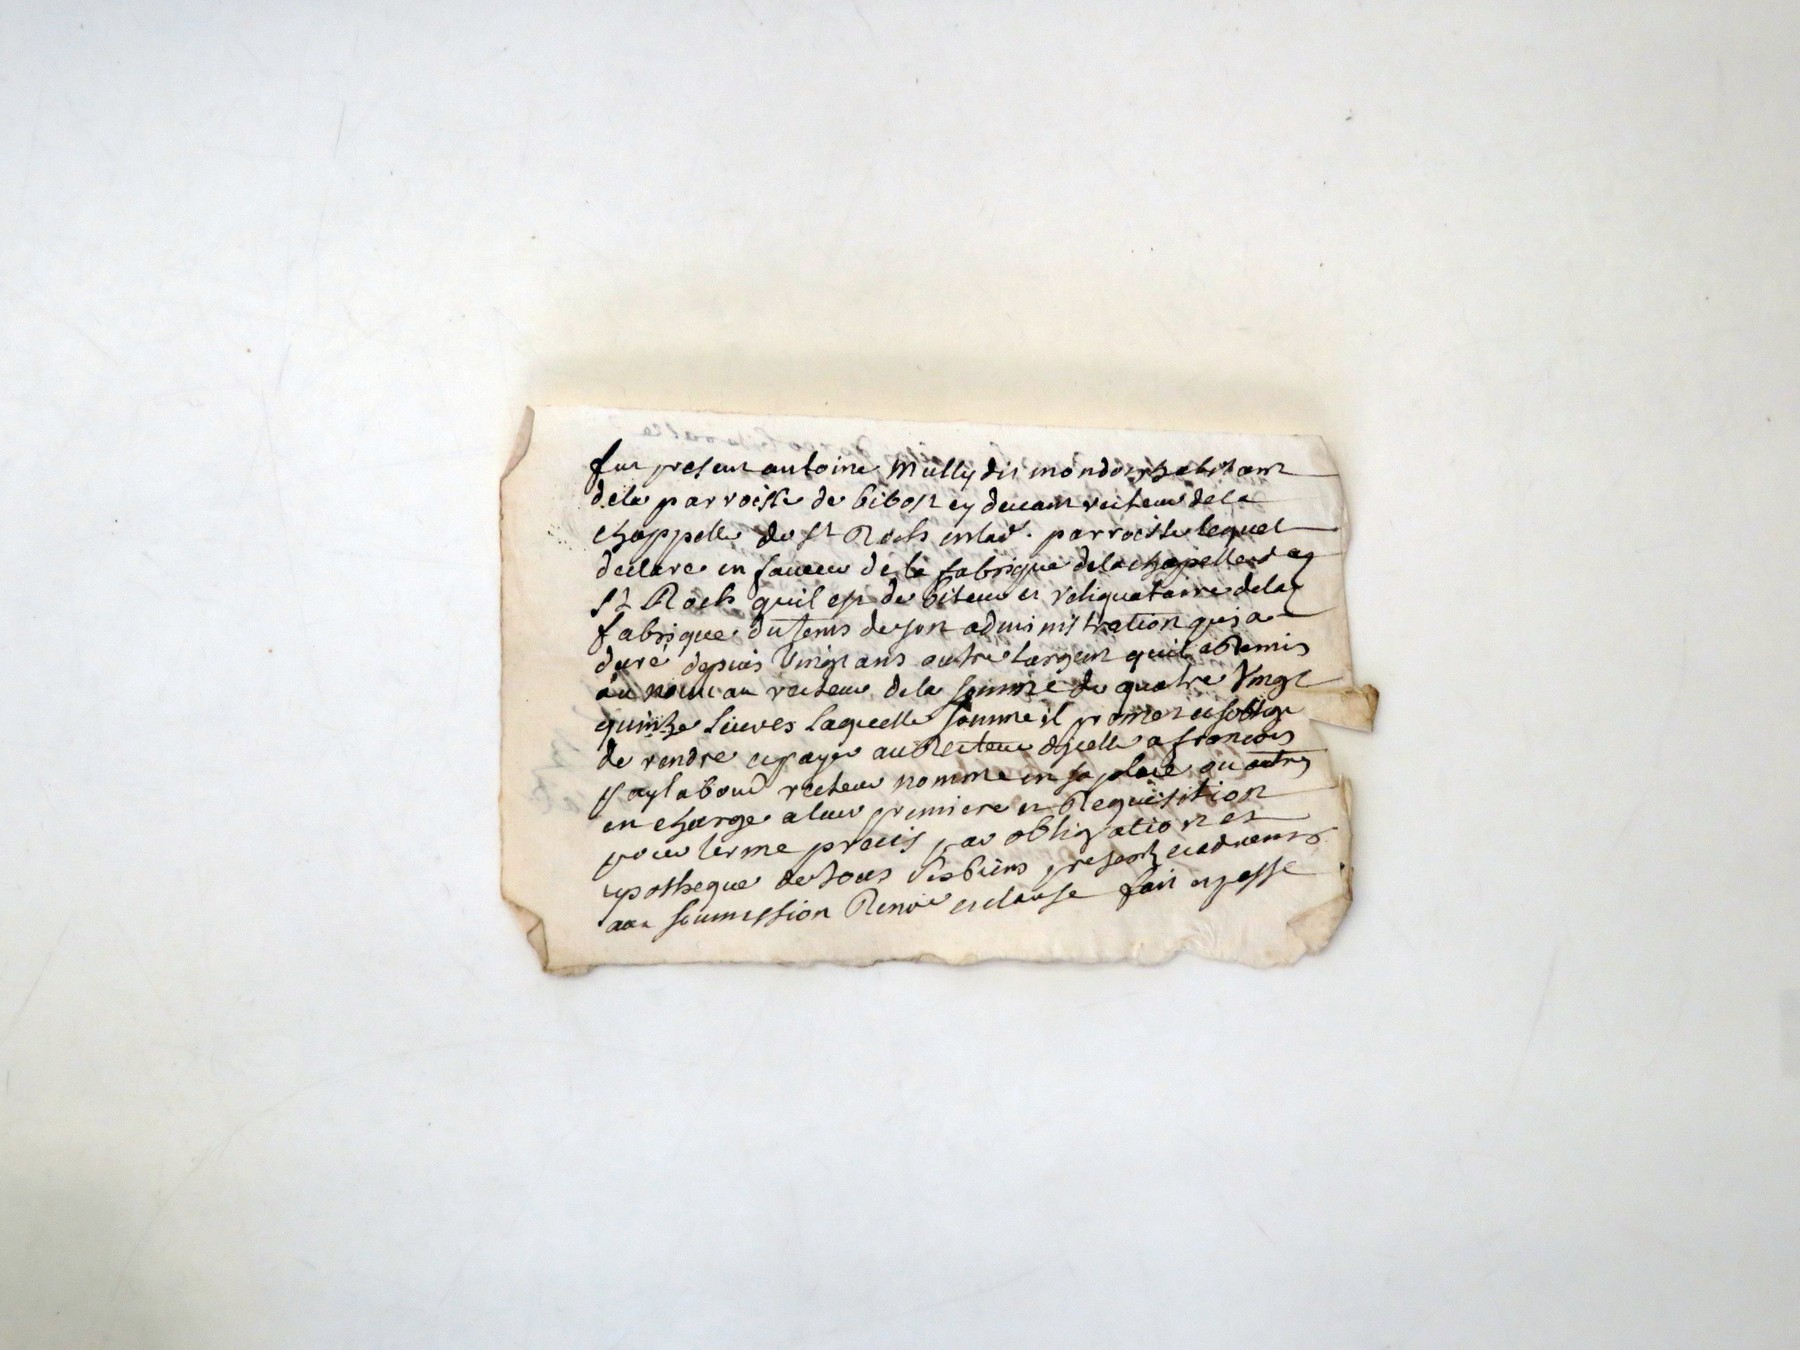 fut present antoine Mully dit mondon habitant
dela parroisse de bibost cy devant recteur dela
chappelle de st Roch en lad. parroisse lequel
declare en faveur de la fabrique dela chapelle de
st Roch quil est debiteur et reliquataire dela
fabrique du tems de son administration qui a
duré depuis vingt ans outre largent quil a Remis
au nouveau recteur dela somme de quatre vingt
quinze livres laquelle somme il promet et soblige
de rendre et payer au Recteur dicelle a francois
recteur nomme en sa place ou autres
en charge a leur premiere et Requisition
pour terme precis par obligation et
ypotheque de tous ses biens presents et advenir
aux soumission Renon et clause fait et passe